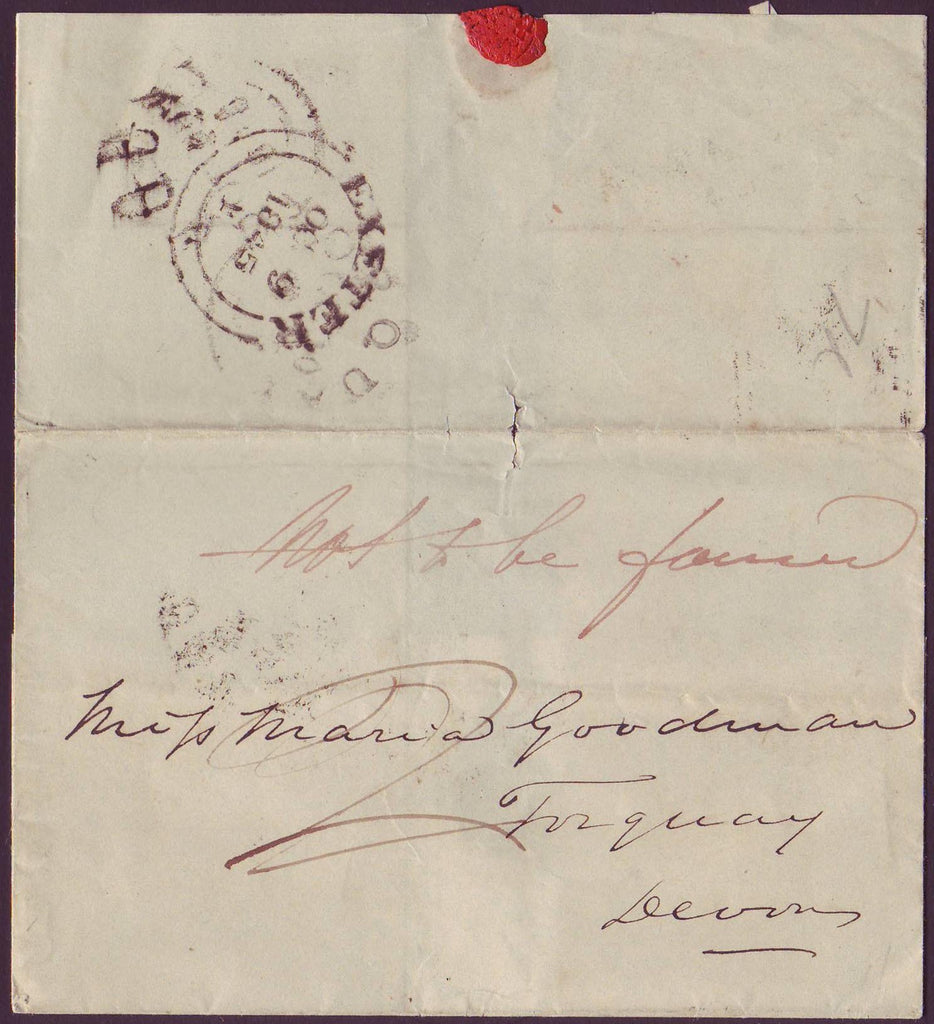 EXETER
OC 9
1845
Not to be found
Miss Maria Goodman
Torquay
Devon